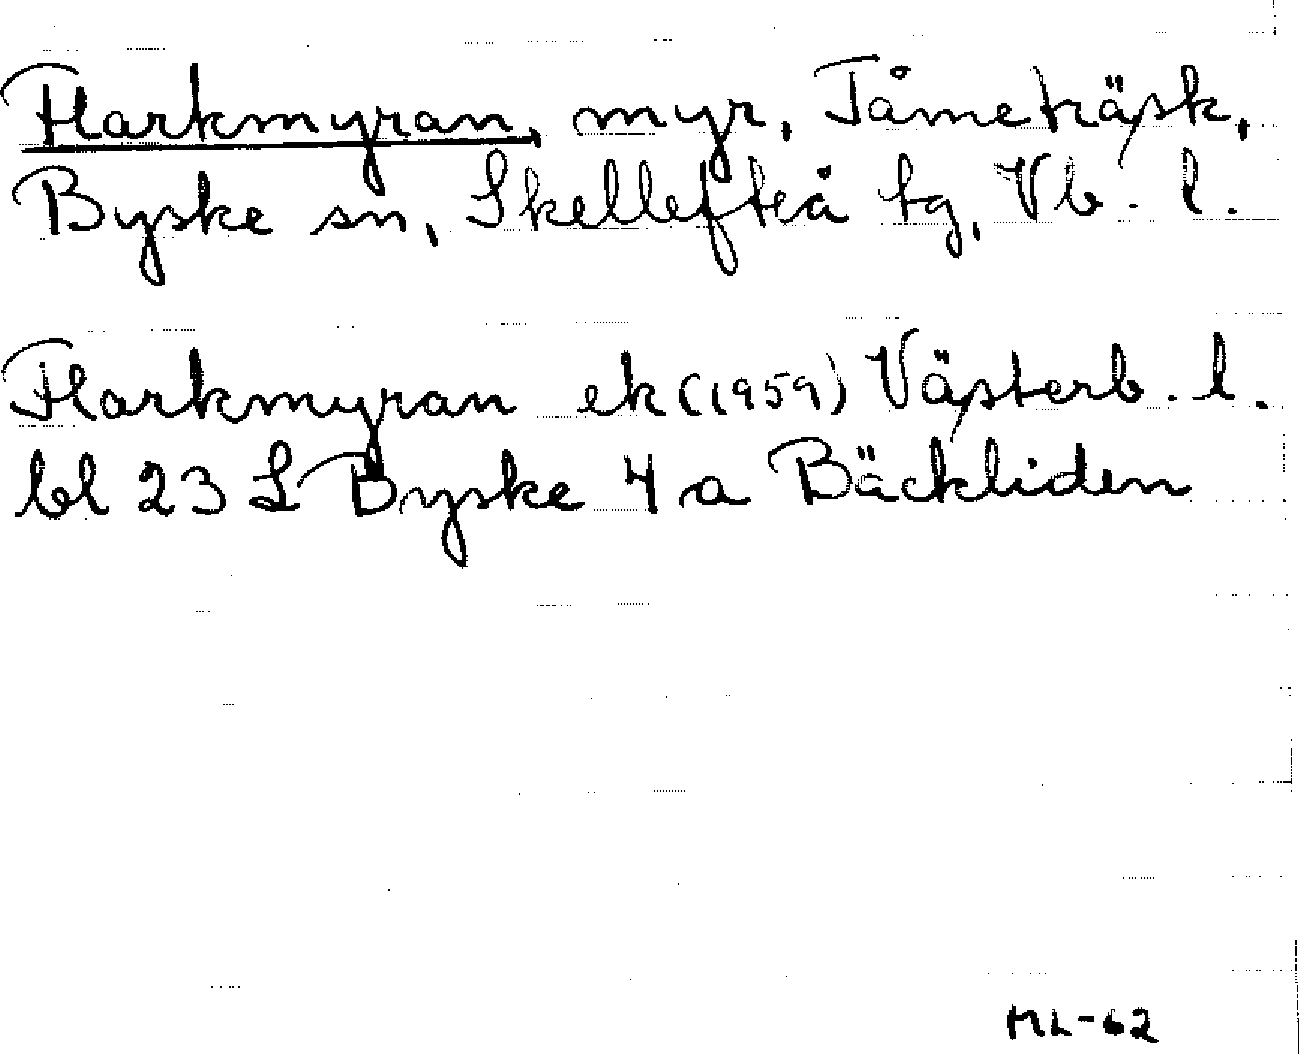 Flarkmyran, myr, Tåmeträsk,
Byske sn, Skellefteå tg, Vb. l.
Flarkmyran ek (1959) Västerb. l.
bl 23 L Byske 4 a Bäckliden
ML-62